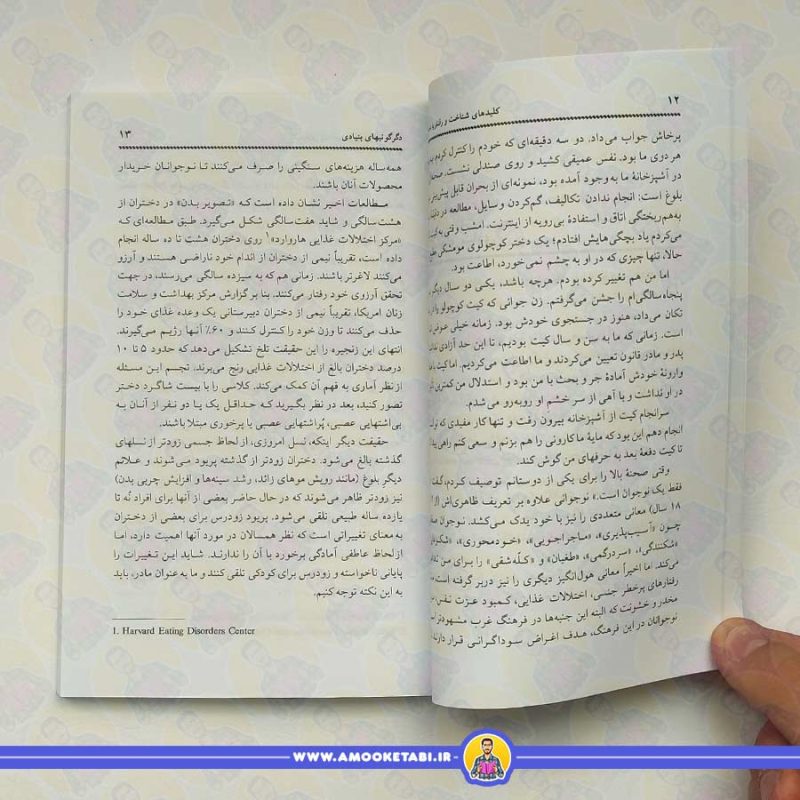 ۱۲
کلیدهای شناخت و رفتار با
پرخاش جواب می‌داد. دو سه دقیقه‌ای که خودم را کنترل کردم
هر دوی ما بود. نفس عمیقی کشید و روی صندلی نشست.
در آشپزخانهٔ ما به‌وجود آمده بود، نمونه‌ای از بحران قابل
بلوغ است: انجام ندادن تکالیف، گم‌کردن وسایل، مطالعه در
به‌هم‌ریختگی اتاق و استفادهٔ بی‌رویه از اینترنت. امشب وقتی به
می‌کردم یاد بچگی‌هایش افتادم؛ یک دختر کوچولوی مومشکی
حالا، تنها چیزی که در او به چشم نمی‌خورد، اطاعت بود.
اما من هم تغییر کرده بودم. هرچه باشد، یکی دو سال دیگر
پنجاه سالگی‌ام را جشن می‌گرفتم. زن جوانی که کیت کوچولو
تکان می‌داد، هنوز در جستجوی خودش بود. زمانه خیلی عوض
است. زمانی که ما به سن و سال کیت بودیم، تا این حد آزادی
پدر و مادر قانون تعیین می‌کردند و ما اطاعت می‌کردیم. اما کیت
وارونهٔ خودش آمادهٔ جر و بحث با من بود و استدلال من کمترین
در او نداشت و با آهی از سر خشم او روبه‌رو می‌شدم.
سرانجام کیت از آشپزخانه بیرون رفت و تنها کار مفیدی که
انجام دهم این بود که مایهٔ ماکارونی را هم بزنم و سعی کنم راهی
تا کیت دفعهٔ بعد به حرفهای من گوش کند.
وقتی صحنهٔ بالا را برای یکی از دوستانم توصیف کردم،
فقط یک نوجوان است.» نوجوانی علاوه بر تعریف ظاهری‌اش
۱۸ سال) معانی متعددی را نیز با خود یدک می‌کشد. نوجوان
چون «آسیب‌پذیری»، «ماجراجویی»، «خودمحوری»،
«شکنندگی»، «سردرگمی»، «طغیان» و «کله‌شقی» را برای من
می‌کند. اما اخیراً معانی هول‌انگیز دیگری را نیز دربر گرفته است
رفتارهای پرخطر جنسی، اختلالات غذایی، کمبود عزت نفس،
مخدر و خشونت که البته این جنبه‌ها در فرهنگ غرب مشهودتر
نوجوانان در این فرهنگ، هدف اغراض سوداگرانی قرار دارند
دگرگونیهای بنیادی
۱۳
همه‌ساله هزینه‌های سنگینی را صرف می‌کنند تا نوجوانان خریدار
محصولات آنان باشند.
مطالعات اخیر نشان داده است که «تصویر بدن» در دختران از
هشت‌سالگی و شاید هفت‌سالگی شکل می‌گیرد. طبق مطالعه‌ای که
«مرکز اختلالات غذایی هاروارد»۱ روی دختران هشت تا ده ساله انجام
داده است، تقریباً نیمی از دختران از اندام خود ناراضی هستند و آرزو
می‌کنند لاغرتر باشند. زمانی هم که به سیزده سالگی می‌رسند، در جهت
تحقق آرزوی خود رفتار می‌کنند. بنا بر گزارش مرکز بهداشت و سلامت
زنان امریکا، تقریباً نیمی از دختران دبیرستانی یک وعده غذای خود را
حذف می‌کنند تا وزن خود را کنترل کنند و ۶۰٪ آنها رژیم می‌گیرند.
انتهای این زنجیره را این حقیقت تلخ تشکیل می‌دهد که حدود ۵ تا ۱۰
درصد دختران بالغ از اختلالات غذایی رنج می‌برند. تجسم این مسئله
از نظر آماری به فهم آن کمک می‌کند. کلاسی را با بیست شاگرد دختر
تصور کنید، بعد در نظر بگیرید که حداقل یک یا دو نفر از آنان به
بی‌اشتهایی عصبی، پُراشتهایی عصبی یا پرخوری مبتلا باشند.
حقیقت دیگر اینکه، نسل امروزی، از لحاظ جسمی زودتر از نسلهای
گذشته بالغ می‌شود. دختران زودتر از گذشته پریود می‌شوند و علائم
دیگر بلوغ (مانند رویش موهای زائد، رشد سینه‌ها و افزایش چربی بدن)
نیز زودتر ظاهر می‌شوند که در حال حاضر بعضی از آنها برای افراد نُه تا
یازده ساله طبیعی تلقی می‌شود. پریود زودرس برای بعضی از دختران
به‌معنای تغییراتی است که نظر همسالان در مورد آنها اهمیت دارد، اما
از لحاظ عاطفی آمادگی برخورد با آن را ندارند. شاید این تغییرات را
پایانی ناخواسته و زودرس برای کودکی تلقی کنند و ما به عنوان مادر، باید
به این نکته توجه کنیم.
1. Harvard Eating Disorders Center
WWW.AMOOKETABI.IR